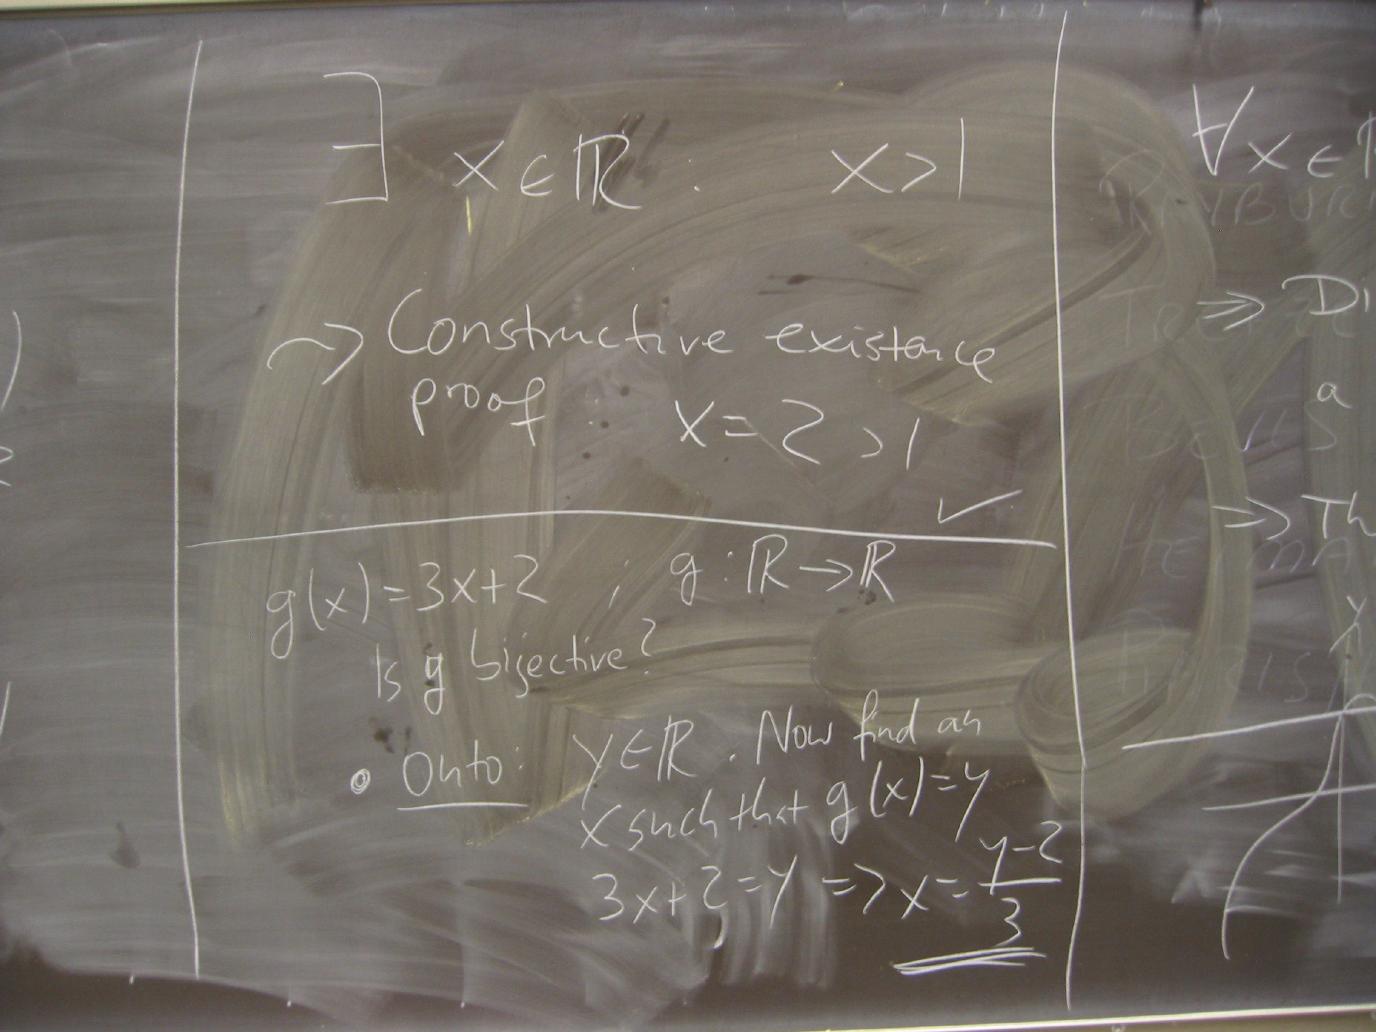 ∃ x ∈ ℝ : x > 1
~> Constructive existence
proof : x = 2 > 1
✓
g(x) = 3x+2 ; g : ℝ → ℝ
Is g bijective?
• Onto: y ∈ ℝ . Now find an
x such that g(x) = y
3x+2 = y => x = (y-2)/3
∀ x ∈
=> Di
a
-> Th